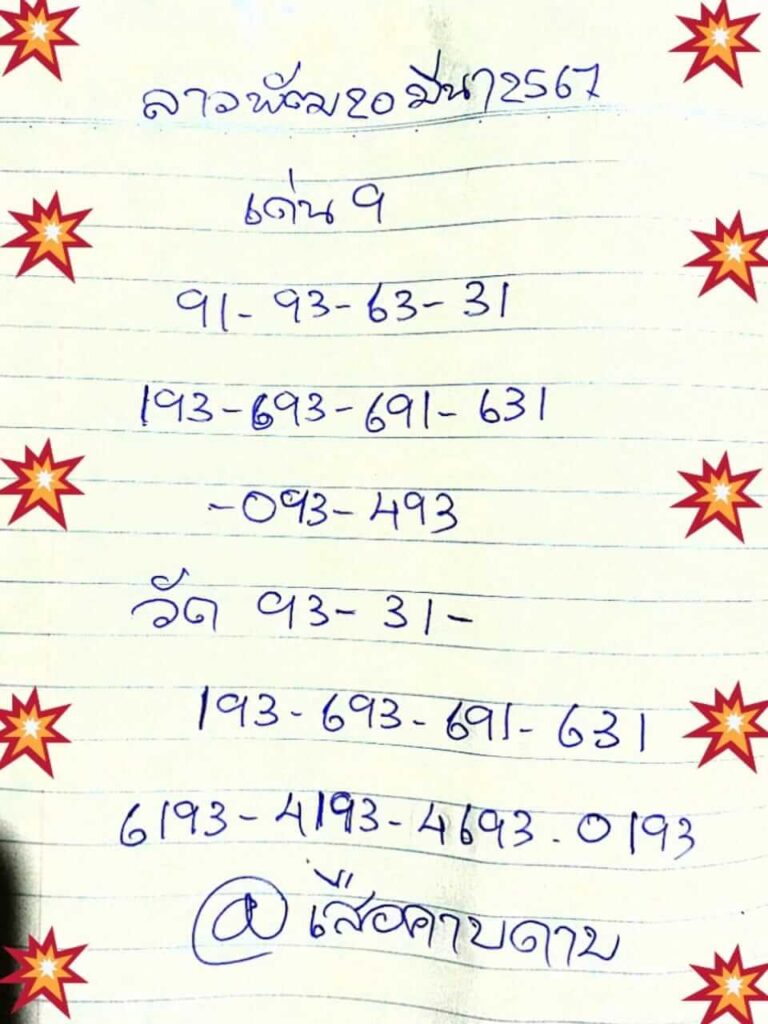 ลาวพัฒ20 มีนา2567
เด่น 9
91- 93-63-31
193-693-691-631
-093-493
วัด 93-31-
193-693-691-631
6193-4193-4693.0193
@เสือคาบดาบ